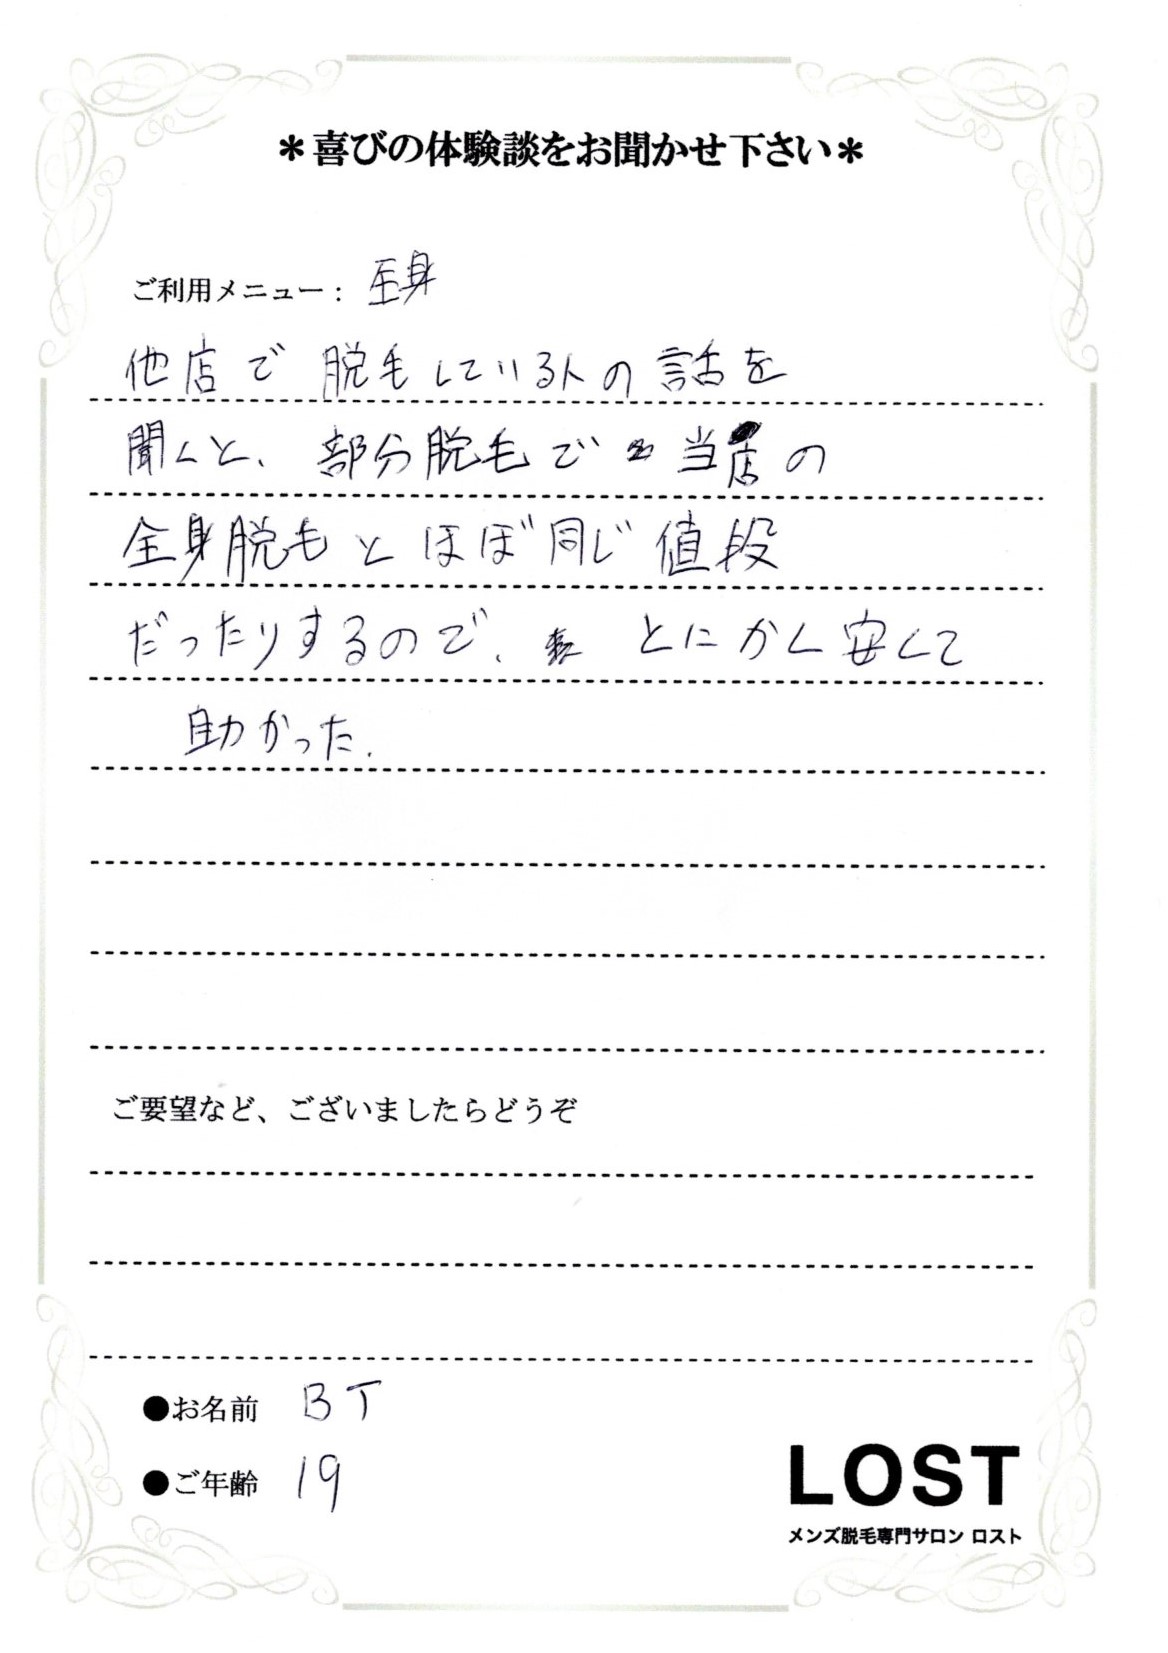 ＊喜びの体験談をお聞かせ下さい＊
ご利用メニュー：全身
他店で脱毛している人の話を
聞くと、部分脱毛で当店の
全身脱毛とほぼ同じ値段
だったりするので、とにかく安くて
助かった.
ご要望など、ございましたらどうぞ
●お名前 BT
●ご年齢 19
LOST
メンズ脱毛専門サロン ロスト